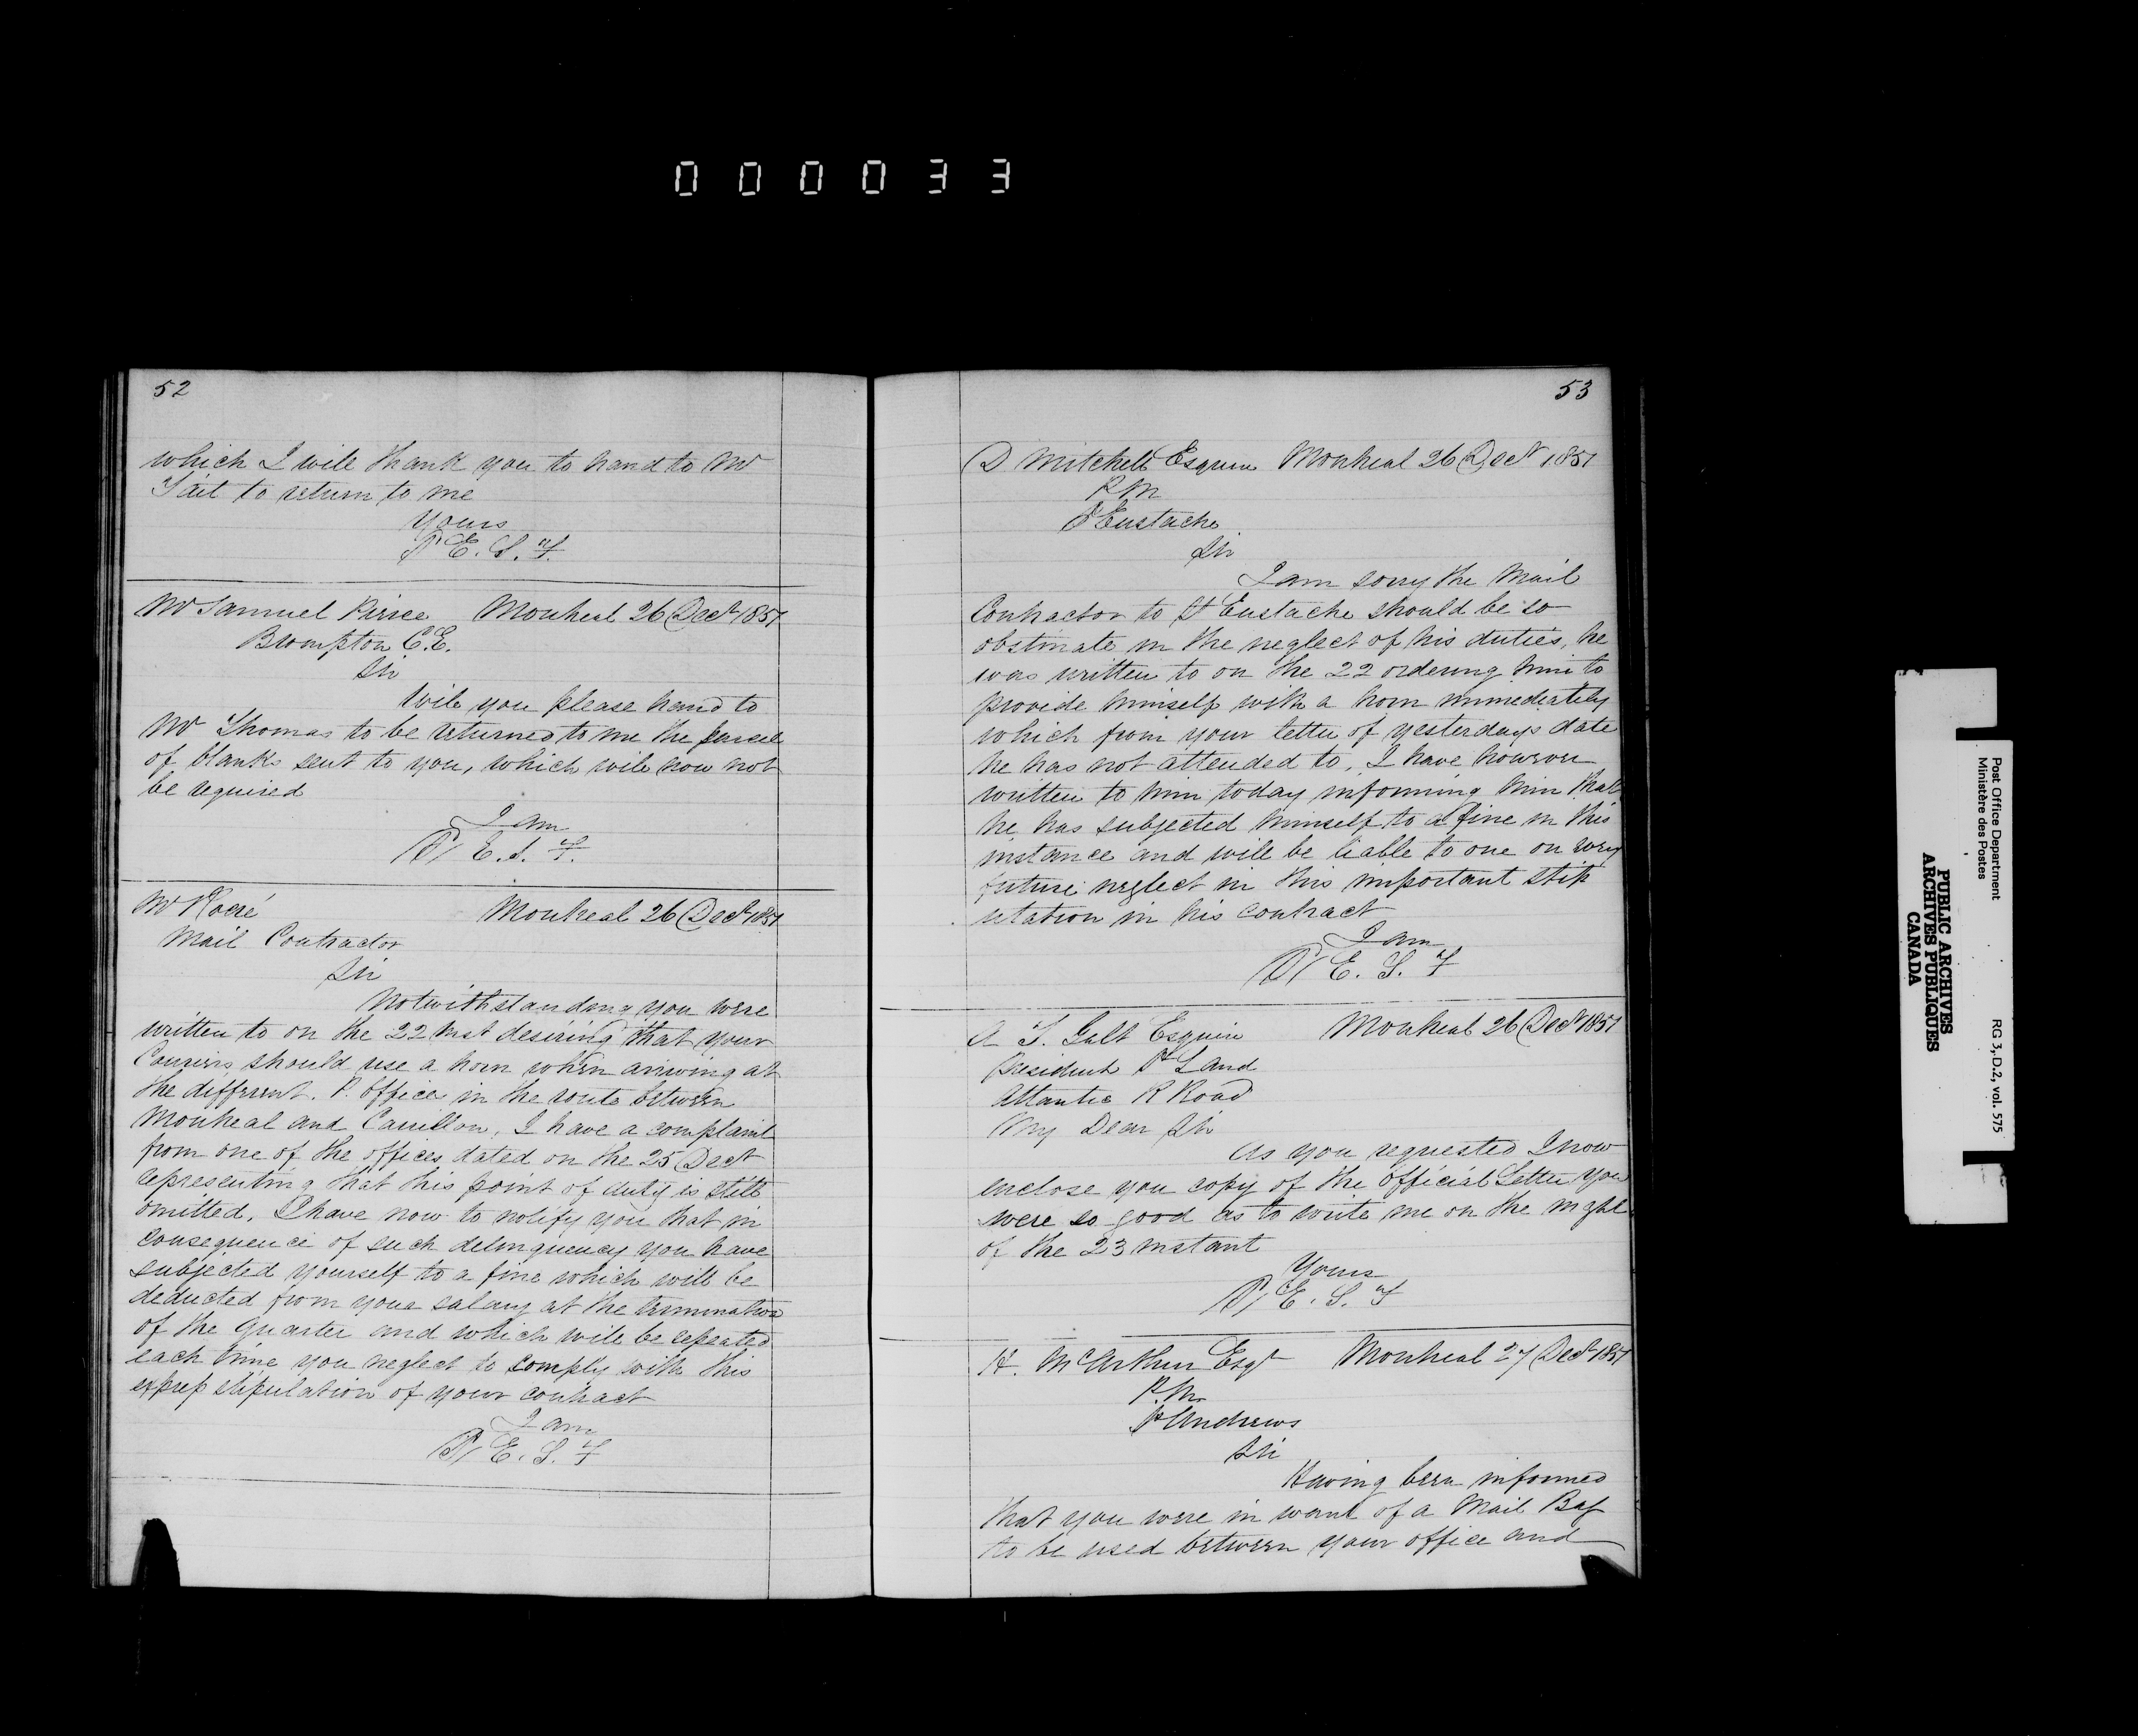 000033
52
which I will thank you to hand to Mr
Tait to return to me
Yours
E. S. F.
Mr Samuel Pirice Montreal 26 Decr 1851
Brompton C.E.
Sir
Will you please hand to
Mr Thomas to be returned to me the parcel
of blanks sent to you, which will now not
be required
I am
E. S. F.
Mr Montreal 26 Decr 1851
Mail Contractor
Sir
Notwithstanding you were
written to on the 22 inst desiring that your
Couriers should use a horn when arriving at
the different P. Offices in the route between
Montreal and Carillon, I have a complaint
from one of the offices dated on the 25 Decr
representing that this point of duty is still
omitted, I have now to notify you that in
consequence of such delinquency you have
subjected yourself to a fine which will be
deducted from your salary at the termination
of the Quarter and which will be repeated
each time you neglect to comply with this
express stipulation of your contract
I am
E. S. F
53
D Mitchell Esquire Montreal 26 Decr 1851
P.M
St Eustache
Sir
I am sorry the Mail
Contractor to St Eustache should be so
obstinate in the neglect of his duties, he
was written to on the 22 ordering him to
provide himself with a horn immediately
which from your letter of yesterdays date
he has not attended to, I have however
written to him today informing him that
he has subjected himself to a fine in this
instance and will be liable to one on every
future neglect in this important stip
ulation in his contract
I am
E. S. F
A T. Galt Esquire Montreal 26 Decr 1851
President St L and
Atlantic R Road
My Dear Sir
As you requested I now
enclose you copy of the official Letter you
were so good as to write me on the night
of the 23 instant
Yours
E. S. F
H. McArthur Esqr Montreal 27 Decr 1851
P.M.
St Andrews
Sir
Having been informed
that you were in want of a Mail Bag
to be used between your office and
Post Office Department
Ministère des Postes
RG 3, D.2, vol. 575
PUBLIC ARCHIVES
ARCHIVES PUBLIQUES
CANADA